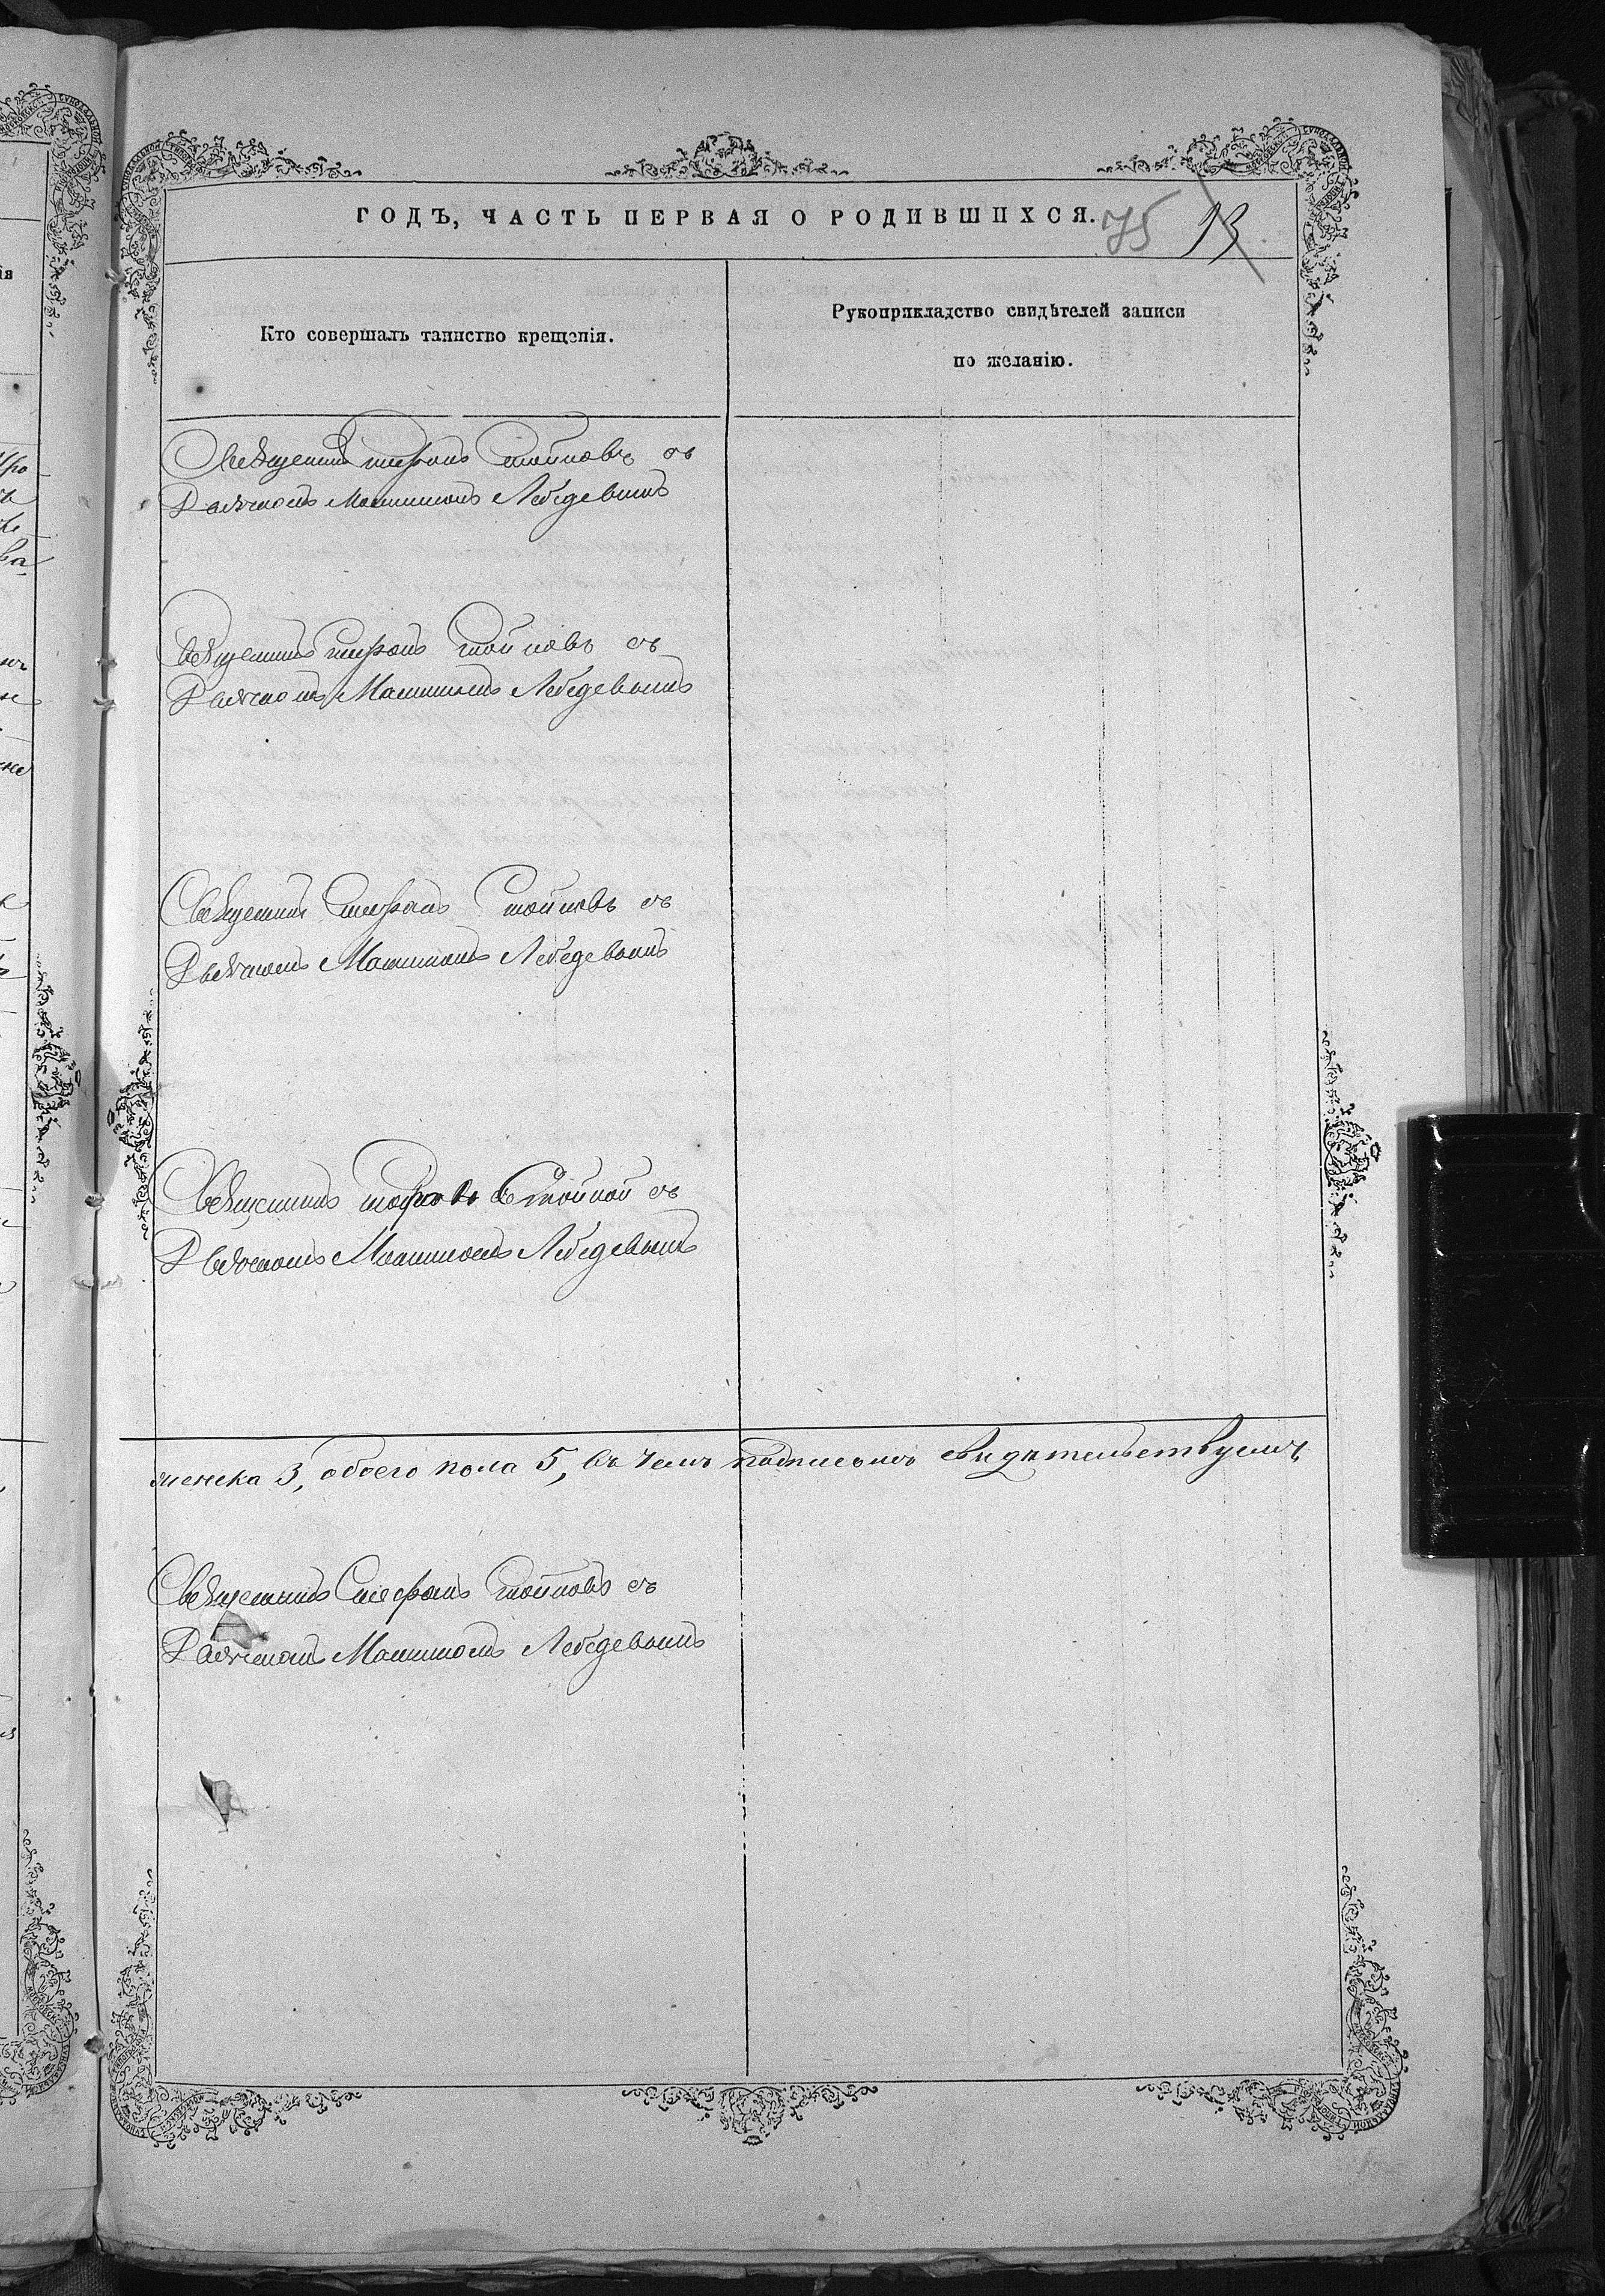 ГОДЪ, ЧАСТЬ ПЕРВАЯ О РОДИВШИХСЯ.
75 13
Кто совершалъ таинство крещенія.
Рукоприкладство свидѣтелей записи
по желанію.
Священникъ Стефанъ Стойновъ съ
Дьячкомъ Лебедевымъ
Священникъ Стефанъ Стойновъ съ
Дьячкомъ Лебедевымъ
Священникъ Стефанъ Стойновъ съ
Дьячкомъ Лебедевымъ
Священникъ съ
Дьячкомъ Лебедевымъ
женска 3, обоего пола 5, въ чемъ подписомъ свидѣтельствуемъ
Священникъ Стефанъ Стойновъ съ
Дьячкомъ Лебедевымъ